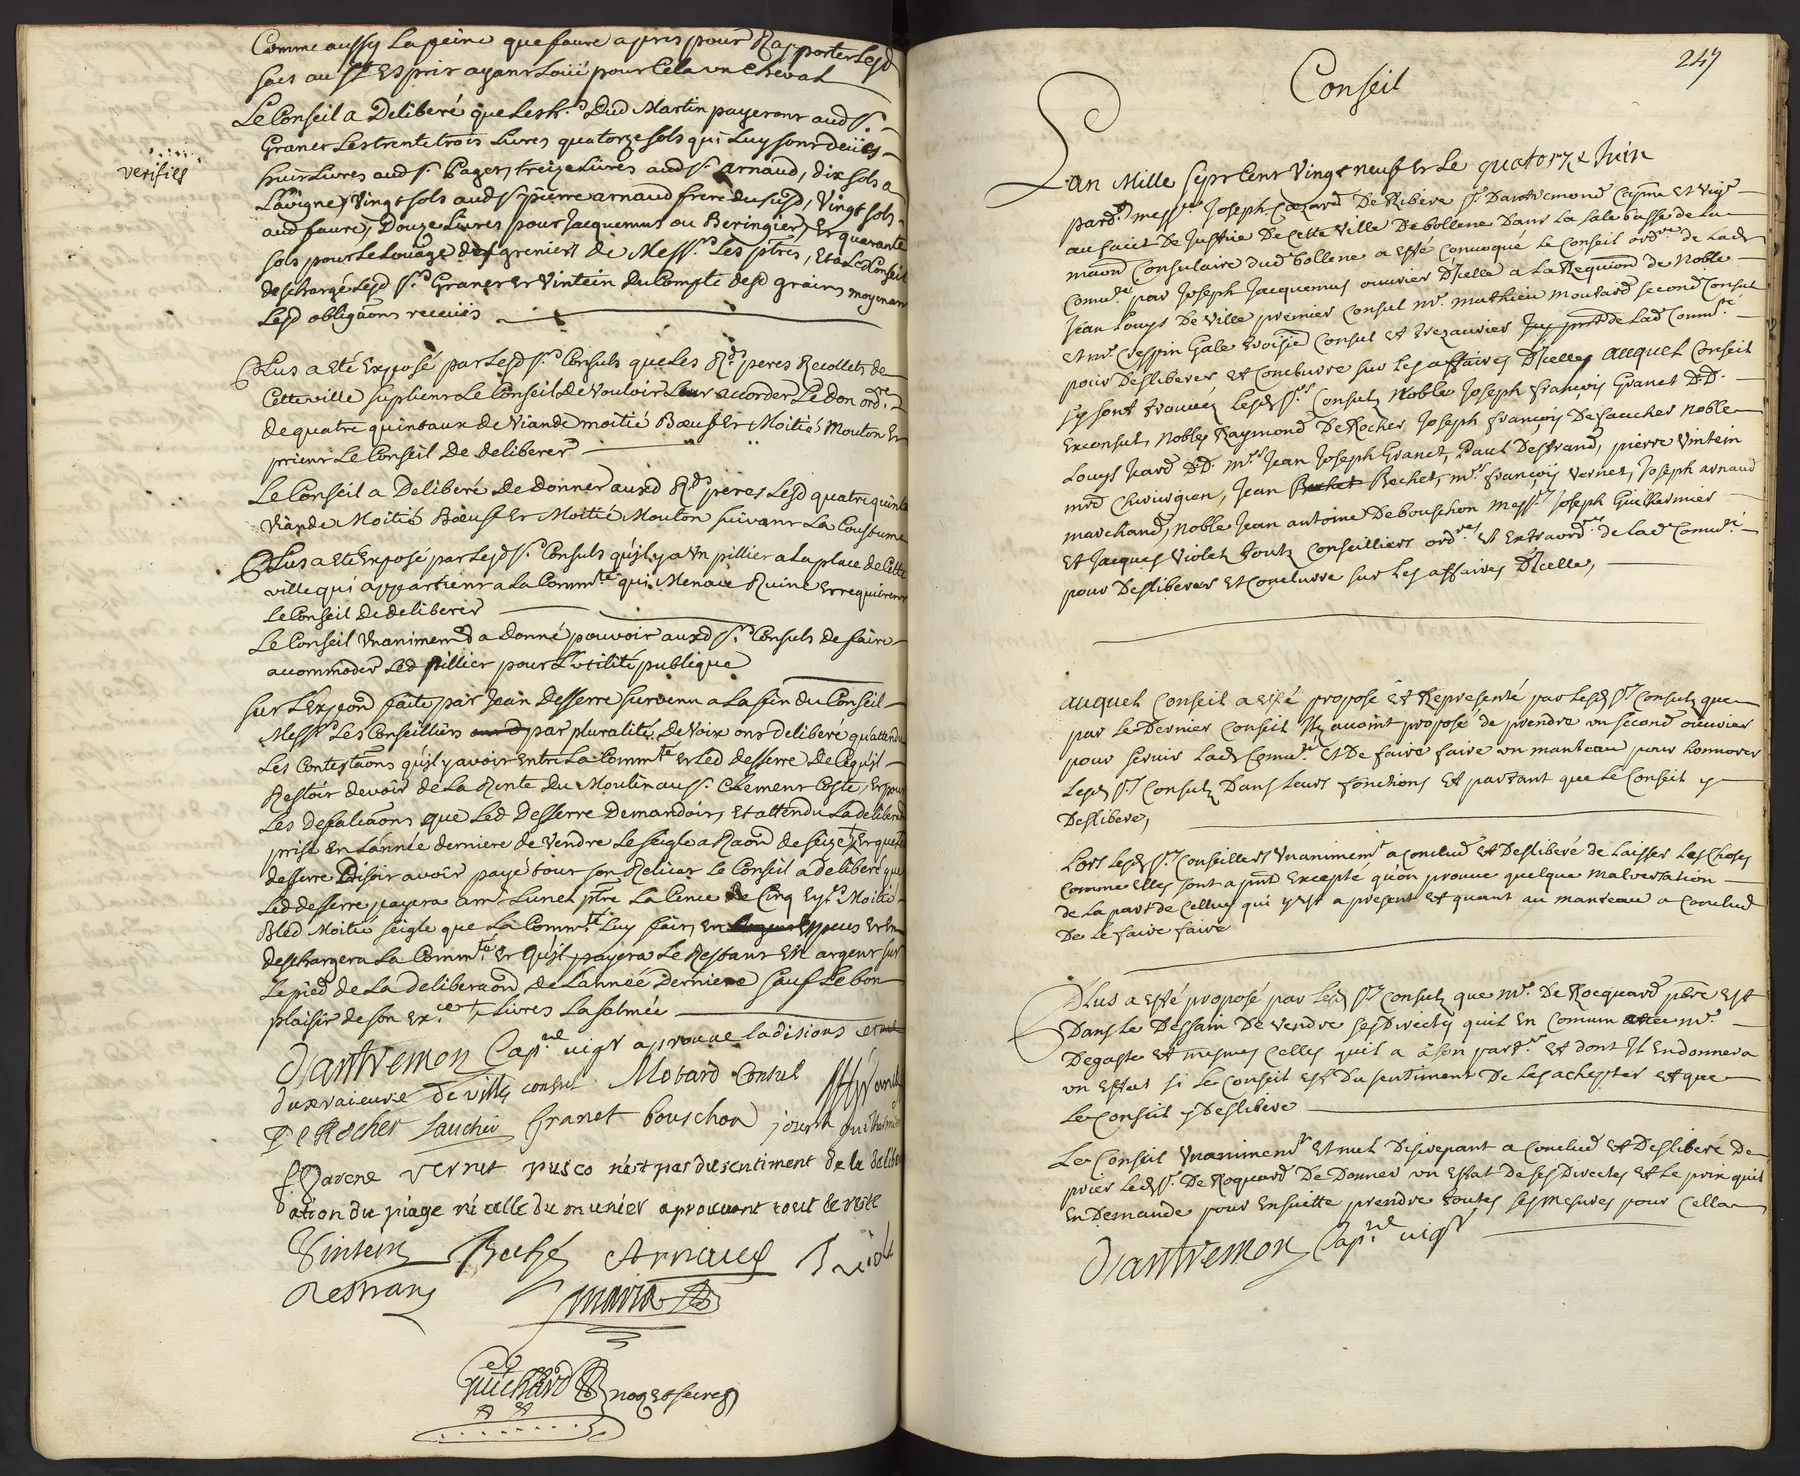 Comme aussy La peine que faure a pris pour Rapporter Lesd
sacs au St Esprit ayant Loüé pour Cela un Cheval
Le Conseil a Deliberé que Les hrs Dud Martin payeront aud Sr
Granet Les trente trois Livres quatorze sols qui Luy sont deües
huit Livres aud Sr Pages, treize Livres aud Sr arnaud, dix sols a
Lavigne, Vingt sols aud Sr pierre arnaud frere du susd, Vingt sols
aud faure, Douze Livres pour Jacquemus ou Beringier, Et quarante
sols pour Le Loüage des greniers de Messrs Les ptres, Et a Led Conseil
deschargé Lesd Srs Granet Et Vintein Du Compte desd grains moyenant
Lesd obligaons receües
verifiés
Plus a eté Exposé par Lesd Srs Consuls que Les Rds peres Recollets de
Cette ville suplient Le Conseil de vouloir Leur accorder Le Don ordre
de quatre quintaux de Viande moitié Bœuf Et Moitié Mouton Et
prient Le Conseil De deliberer
Le Conseil a Deliberé De donner auxd Rds peres Lesd quatre quint
Viande Moitié Bœuf Et Moitié Mouton suivant La Coustume
Plus a eté Exposé par Lesd Srs Consuls qu'il y a Un pillier a La place de Cette
ville qui appartient a La Commté qui Menace Ruine Et requierent
Le Conseil De deliberer
Le Conseil Unanimemt a Donné pouvoir auxd Srs Consuls de faire
accommoder Led pillier pour L'utilité publique
sur L'expon faite par Jean Desserre survenu a La fin du Conseil
Messrs Les Conseilliers par pluralité De Voix ont deliberé qu'attendu
Les Contestaons qu'il y avoit Entre La Commté et Led desserre De ce qu'il
Restoit devoir de La Rente Du Moulin au Sr Clement Coste, Et pour
Les Defalcaons que Led Desserre Demandoit, Et attendu La deliberaon
prise En L'année derniere de vendre Le seigle a Raon de seize Et que
desserre Disoit avoir payé tout son Reliqat Le Conseil a deliberé que
Led desserre payera a Mr Lunel ptre La Cence De Cinq Eymes Moitié
Bled Moitié seigle que La Commté Luy fait, en Especes Et En
deschargera La Commté Et qu'il payera Le Restant En argent sur
Le pied de La deliberaon De L'année Derniere sauf Le bon
plaisir de son Exce Livres La salmée
D'antremon Capne vigr aprouve ladisions et
duxraieure De ville consul Motard Consul
De Rocher Faucher Granet Bouschon Jourd guilhermier
Vernet pusco n'est pas du sentiment de la deliber
ation du piage ni celle du munier aprouvant tout le reste
Vintein Bechet Arnaud Violet
Destrans maria
Guichard nore et secre
247
Conseil
L'an Mille sept Cent Vingt neuf et Le quatorze Juin
pardt messre Joseph Cezard De Ribere Sr Dantremond Capne Et Vigr
au faict De Justice De Cette Ville De bollene Dans La sale basse de La
maison Consulaire dud bollene a Esté Convoqué Le Conseil ordre de Lade
Comuté par Joseph Jacquemus ouvrier D'Icelle a La Requison de Noble
Jean Louys De Ville premier Consul mr mathieu moutard second Consul
et mr Crespin Gale troisie Consul et trezaurier Icy pnt de Lade Commté
pour Desliberer et Conclurre sur Les affaires D'Icelle, auquel Conseil
sy sont trouvez Lesd Srs Consulz Noble Joseph françois Granet D.D.
Exconsul, Nobles Raymond De Rocher Joseph françois De faucher noble
Louys Juard D.D. mrs Jean Joseph Granet, Paul Destrand, pierre Vintein
mre Chirurgien, Jean Bechet, mrs françois Vernet, Joseph arnaud
marchand, noble Jean antoine De bouschon messre Joseph Guilhermier
Et Jacques Violet toutz Conseilliers ordres et Extraordres de Lade Comuté
pour Desliberer et Conclurre sur Les affaires D'Icelle,
auquel Conseil a esté proposé et Representé par Lesd Srs Consulz que
par Le Dernier Conseil Ils avoint proposé de prendre un second ouvrier
pour servir Lade Comuté Et De faire faire un manteau pour honnorer
Lesd Srs Consulz Dans Leurs fonctions Et partant que Le Conseil y
Deslibere,
Lors Lesd Srs Conseillers Unanimemt a Conclud et Desliberé de Laisser Les Choses
Comme elles sont a pnt Excepté quon prouve quelque malversation
de La part de Celluy qui y est a present Et quant au manteau a Conclud
De Le faire faire
Plus a esté proposé par Lesd Srs Consulz que mr De Rocquard pbre est
Dans Le Dessain De Vendre ses Directes quil En Comun avec mr
Degaste et mesmes Celles quil a à son partr et dont Il En donnera
un Estat si Le Conseil est Du sentiment De Les achepter et que
Le Conseil y Deslibere
Le Conseil Unanimemt et nul Discrepant a Conclud et Desliberé De
prier Led Sr De Roquard De Donner un Estat de ses Directes et Le prix quil
En Demande pour Ensuitte prendre toutes ses mesures pour Cella
D'antremon Capne vigr